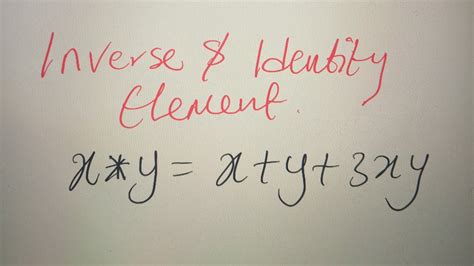 Inverse & Identity
Element.
x*y = x+y+3xy